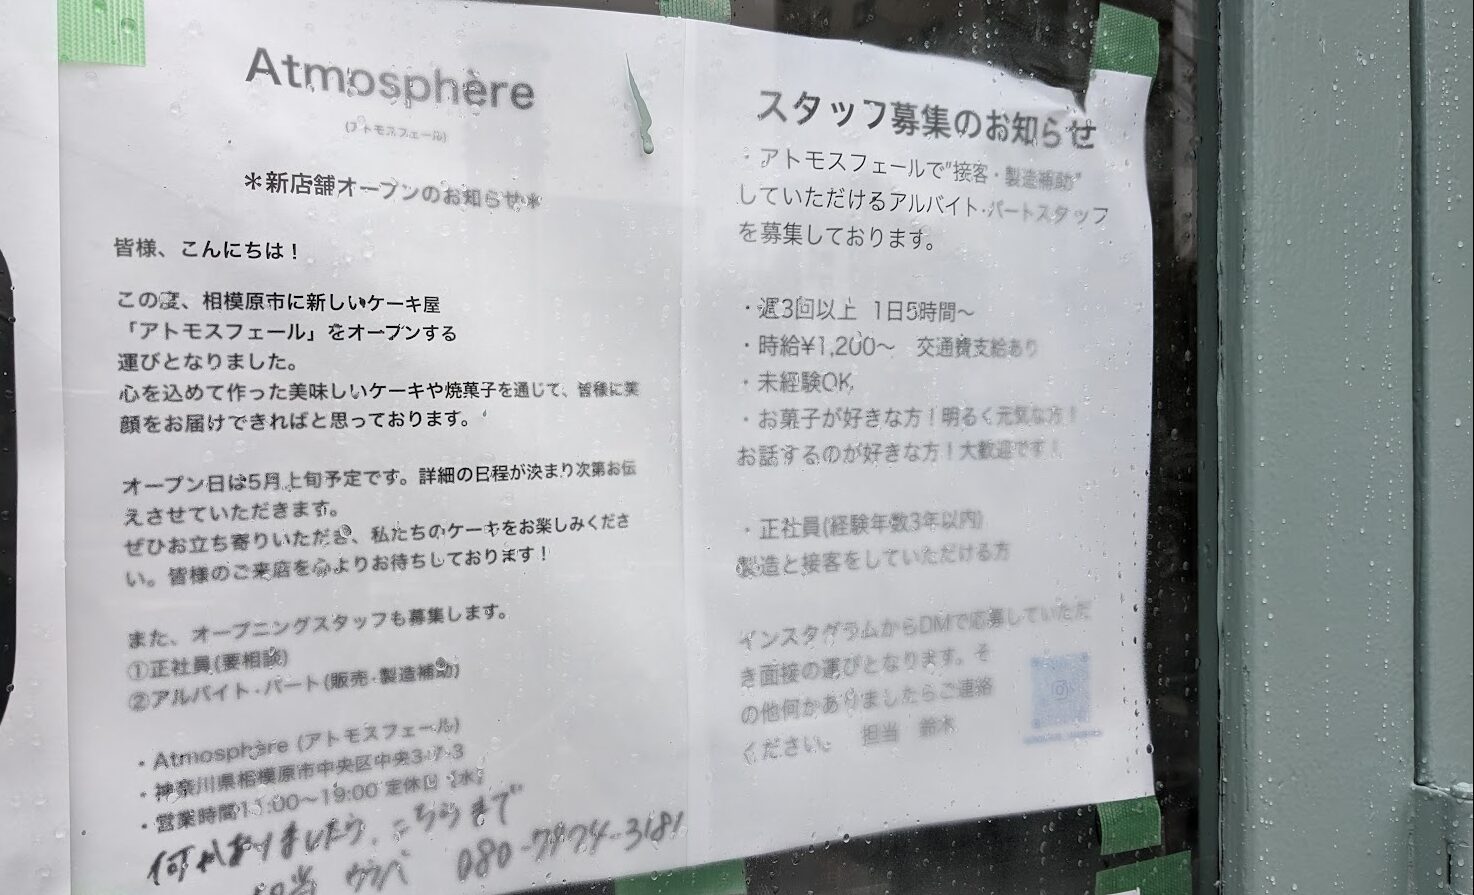 Atmosphère
(アトモスフェール)
＊新店舗オープンのお知らせ＊
皆様、こんにちは！
この度、相模原市に新しいケーキ屋
「アトモスフェール」をオープンする
運びとなりました。
心を込めて作った美味しいケーキや焼菓子を通じて、皆様に笑
顔をお届けできればと思っております。
オープン日は5月上旬予定です。詳細の日程が決まり次第お伝
えさせていただきます。
ぜひお立ち寄りいただき、私たちのケーキをお楽しみくださ
い。皆様のご来店を心よりお待ちしております！
また、オープニングスタッフも募集します。
①正社員(要相談)
②アルバイト・パート(販売・製造補助)
・Atmosphère (アトモスフェール)
・神奈川県相模原市中央区中央3-7-3
・営業時間11:00〜19:00 定休日【水】
何かありましたら、こちらまで
担当 080-7474-3181
スタッフ募集のお知らせ
・アトモスフェールで"接客・製造補助"
していただけるアルバイト・パートスタッフ
を募集しております。
・週3回以上 1日5時間〜
・時給¥1,200〜 交通費支給あり
・未経験OK
・お菓子が好きな方！明るく元気な方！
お話するのが好きな方！大歓迎です！
・正社員(経験年数3年以内)
製造と接客をしていただける方
インスタグラムからDMで応募していただ
き面接の運びとなります。そ
の他何かありましたらご連絡
ください。 担当 鈴木